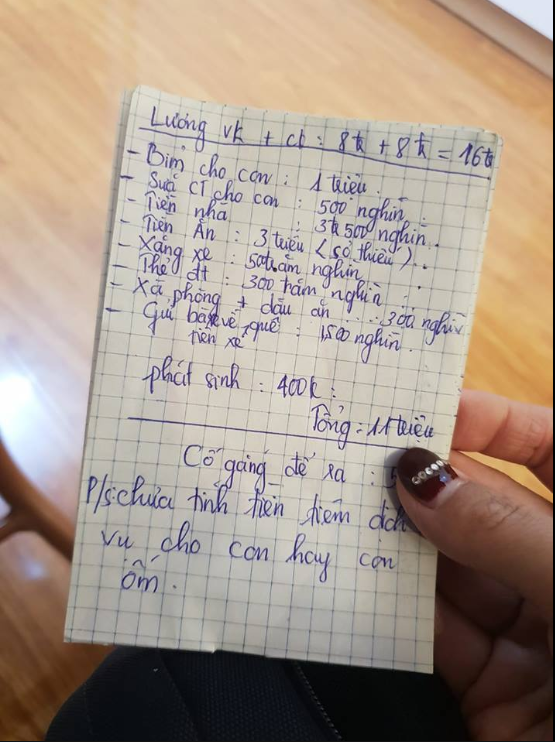 Lương vk + ck : 8tr + 8tr = 16tr
- Bỉm cho con : 1 triệu .
- Sữa CT cho con : 500 nghìn .
- Tiền nhà : 3tr 500 nghìn .
- Tiền Ăn : 3 triệu ( số thiểu ) .
- Xăng xe : 500 trăm nghìn
- Thẻ đt : 300 trăm nghìn .
- Xà phòng + dầu ăn ... 300 nghìn
- Gửi bà về quê : 1500 nghìn .
tiền xe
phát sinh : 400k :
Tổng = 11 triệu
Cố gắng để ra :
P/s: chưa tính tiền tiêm dịch
vu cho con hay con
ốm .